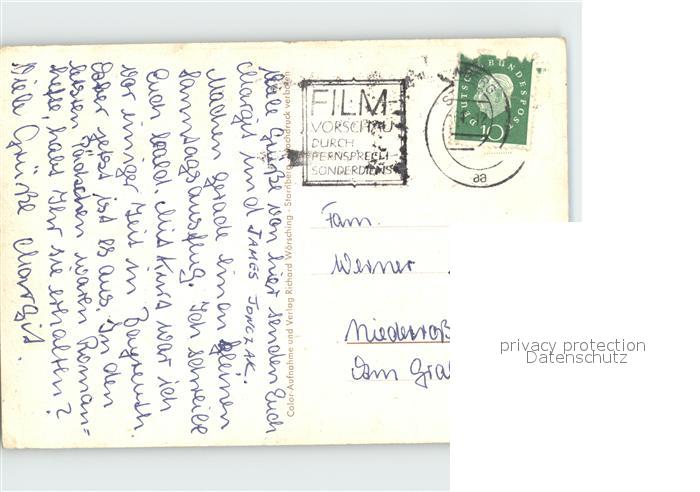 Viele Grüße von hier senden Euch
Margit und JAMES JONCZAK.
Machen gerade einen kleinen
Samstagsausflug. Ich schreibe
Euch bald. Mit Kurs war ich
vor einiger Zeit in Bayreuth.
Aber jetzt ist es aus. In den
Päckchen waren Roman=
hefte, habt Ihr sie erhalten?
Viele Grüße Margit.
Color-Aufnahme und Verlag Richard Wörsching - Starnberg Nachdruck verboten
FILM-
VORSCHAU
DURCH
FERNSPRECH-
SONDERDIENST
DEUTSCHE BUNDESPOST
10
aa
Fam.
Werner
Niederroß
Am Gra
privacy protection
Datenschutz